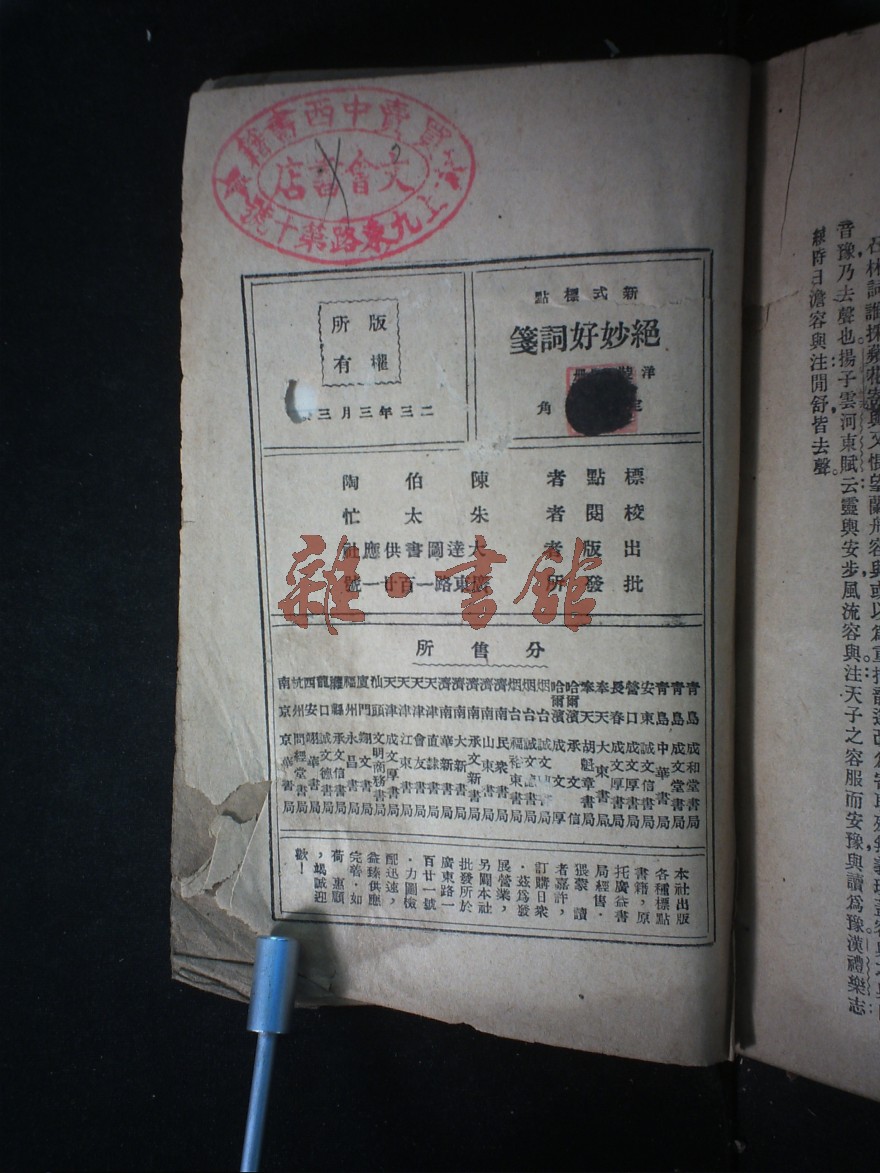 買賣中西書籍
文會書店
上九東路藥十號
新式標點
絕妙好詞箋
洋裝
角
版權所有
二三年三月三
標點者 陳伯陶
校閱者 朱太忙
出版者 大達圖書供應社
批發所 廣東路一百廿一號
分售所
青島 成和堂書局
青島 成文堂書局
青島 中華書局
安東 誠文信書局
營口 成文厚書局
長春 成文厚書局
奉天 大東書局
奉天 胡魁章書局
哈爾濱 承文信
哈爾濱 成文厚
烟台 誠文
烟台 誠文
烟台 福裕東書局
濟南 民衆書局
濟南 山東書局
濟南 承文新書局
濟南 大新書局
濟南 華新書局
天津 直隸書局
天津 會友書局
天津 江東書局
天津 成文厚書局
汕頭 文明商務書局
廈門 翔文書局
福州 永昌書局
承文信書局
龍口 誠文德書局
西安 翊華書局
杭州 問經堂書局
南京 京華書局
本社出版
各種標點
書籍，原
托廣益書
局經售．
猥蒙 讀
者嘉許，
訂購日衆
．茲爲發
展營業，
另闢本社
批發所於
廣東路一
百廿一號
．力圖檢
配迅速，
益臻供應
完善．如
荷 惠顧
，竭誠迎
歡！
雜·書館
音豫乃去聲也揚子雲河東賦云靈輿安步風流容與注天子之容服而安豫與讀爲豫漢禮樂志
練時日澹容與注閒舒皆去聲。